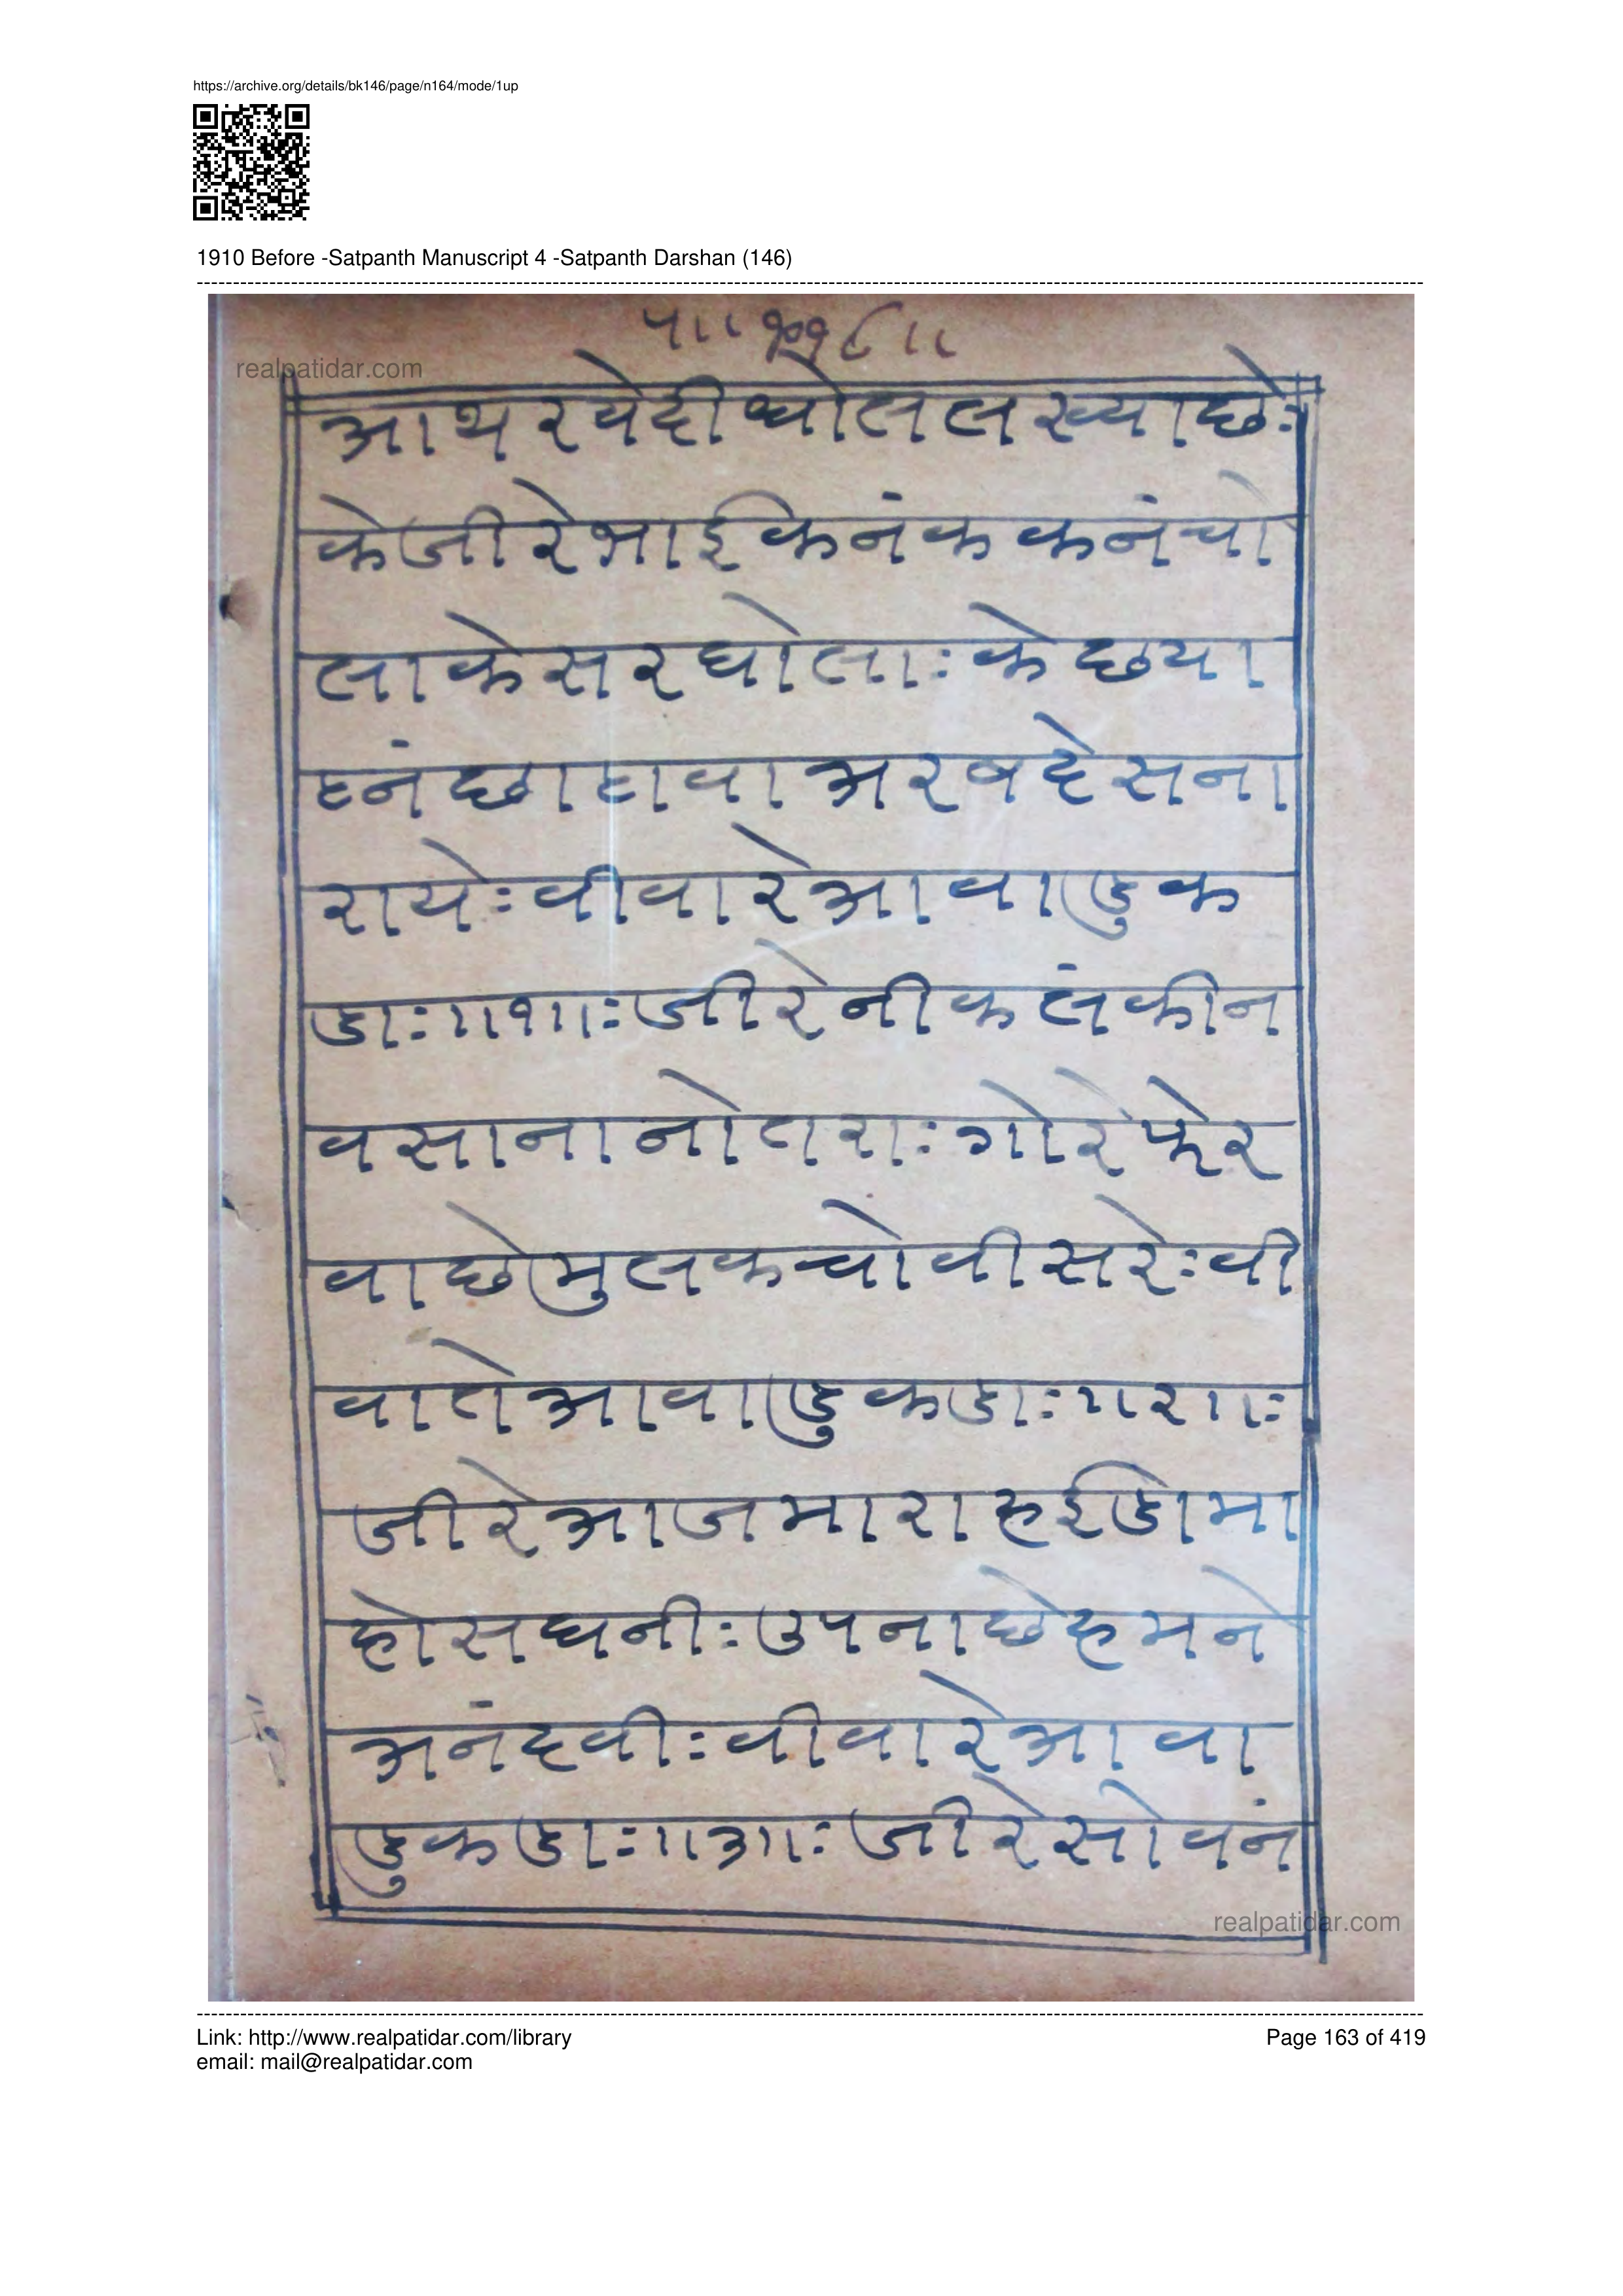 https://archive.org/details/bk146/page/n164/mode/1up
1910 Before -Satpanth Manuscript 4 -Satpanth Darshan (146)
realpatidar.com
आथरवेदी धोलललख्याछेः
केजीरेभाईकेनंककनंचो
लाकेसरघोलाः केछया
हनंछाहावाअरबदेसना
रायेः वीवारेआवाडुक
डाः॥१॥ः जीरेनीकलंकीन
वसानानोतराः गोरेफेर
वाछेमुलकचोवीसरेः वी
वातेआवाडुकडाः॥२॥ः
जीरेआजमाराहईडामा
होसघनीः उपनाछेहमने
अनंदवीः वीवारेआवा
डुकडाः॥३॥ः जीरेसोवनं
realpatidar.com
Link: http://www.realpatidar.com/library
Page 163 of 419
email: mail@realpatidar.com